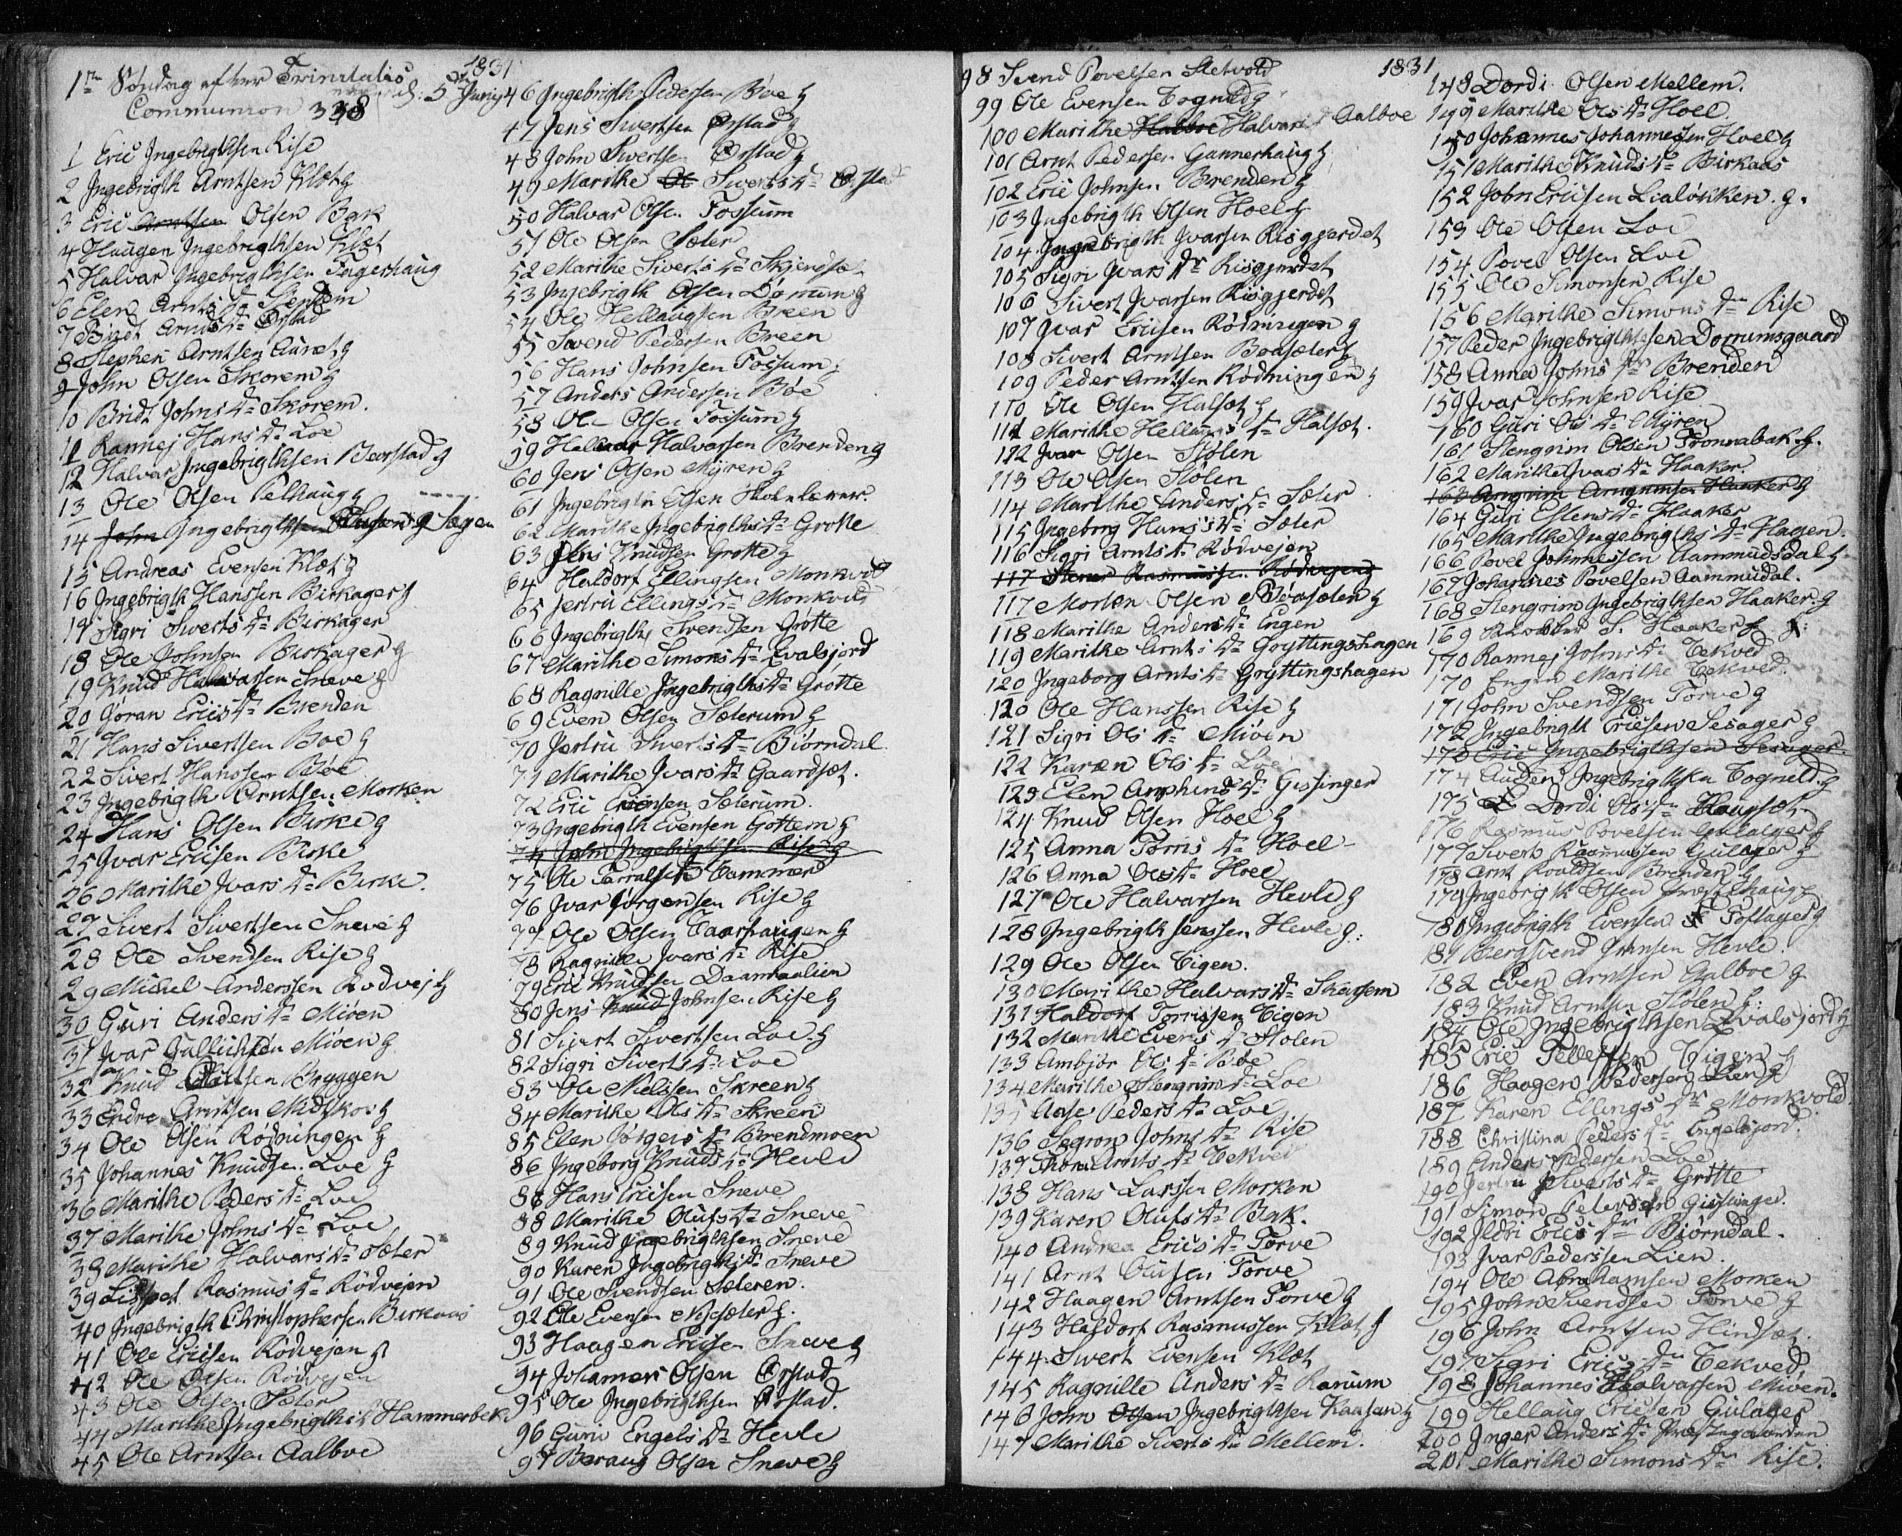 1831
1ste Søndag efter Trinitatis
d: 5 Junij
Communion 338
1 Eric Ingebrigthsen Rise
2 Ingebrigth Arntsen Klæt g
3 Eric Arntsen Olsen Bak
4 Haugen Ingebrigthsen Klæt
5 Halvar Ingebrigthsen Fagerhaug
6 Elen Arnts Dr Stendem
7 Bridt Arnds Dr Ørstad
8 Stephen Arntsen Aunet g
9 John Olsen Skorem g
10 Bridt Johns Dr Skorem.
11 Rannej Hans Dr Loe
12 Halvar Ingebrigthsen Bærstad g
13 Ole Olsen Pelhaug g
14 John Ingebrigthsen g Sægen
15 Andreas Evensen Klæt g
16 Ingebrigth Hanssen Birkager g
17 Sigri Siverts Dr Birkager
18 Ole Johnsen Birkager g
19 Knud Halvarssen Sneve g
20 Göran Erics Dr Brenden
21 Hans Sivertsen Boe g
22 Sivert Hanssen Böe
23 Ingebrigth Arntsen Morken
24 Hans Olsen Birke g
25 Ivar Ericsen Birke
26 Marithe Ivars Dr Birke.
27 Sivert Sivertsen Sneve g
28 Ole Svendsen Rise g
29 Mickel Anderssen Rødvej g
30 Guri Anders Dr Miöen
31 Ivar Gullichsen Miöen g
32 Knud Bryggen
33 Endre Arntsen Midtskoi g
34 Ole Olsen Rödningen g
35 Johannes Knudsen Loe g
36 Marithe Peders Dr Loe
37 Marithe Johns Dr Loe
38 Marithe Halvars Dr Sæter
39 Lisbet Rasmus Dr Rödvejen
40 Ingebrigth Christophersen Birkaas
41 Ole Ericsen Rödvejen g
42 Ole Olsen Rödvejen
43 Ole Olsen Sæter
44 Marithe Ingebrigths Dr Hammerbek
45 Ole Arntsen Aalboe
46 Ingebrigth Pedersen Böe g
47 Jens Sivertsen Ørstad g
48 John Sivertsen Ørstad g
49 Marithe Ol Siverts Dr Ørstad
50 Halvar Olsen Fossum
51 Ole Olsen Sæter
52 Marithe Siverts Dr Skjendsæt
53 Ingebrigth Olsen Dörrum g
54 Ole Hellaugsen Breen
55 Svend Pedersen Breen
56 Hans Johnsen Fossum g
57 Anders Andersen Böe
58 Ole Olsen Fossum g
59 Halvarssen Brenden g
60 Jens Olsen Myren g
61 Ingebrigth Olsen Skolelærer.
62 Marithe Ingebrigths Dr Grötte
63 Jens Knudsen Grotte g
64 Haldorf Ellingsen Monkvold
65 Jertru Ellings Dr Monkvold
66 Ingebrigth Svendsen Grötte
67 Marithe Simons Dr Evalsjord
68 Ragnille Ingebrigths Dr Grotte
69 Even Olsen Sæterum g
70 Jertru Siverts Dr Biörndal
71 Marithe Ivars Dr Gaardsæt.
72 Eric Ericsen Sæterum.
73 Ingebrigth Evensen Gottem g
74 John Ingebrigthsen Rise g
75 Ole Tammer
76 Ivar Jörgensen Rise g
77 Ole Olsen Taarhaugen g
78 Ragnille Ivars Dr Rise
79 Eric Knudsen
80 Jens Knud Johnsen Rise g
81 Sivert Sivertsen Loe g
82 Sigri Siverts Dr Loe
83 Ole Nielssen Skreen g
84 Marithe Ols Dr Skreen
85 Elen Jörgens Dr Brendmoen
86 Ingeborg Knuds Dr Hevle
88 Hans Ericsen Sneve
88 Marithe Olufs Dr Sneve
89 Knud Ingebrigthsen Sneve
90 Karen Ingebrigths Dr Sneve
91 Ole Svendsen Sæteren.
92 Ole Evensen g.
93 Haagen Ericsen Sneve g
94 Johannes Olsen Ørstad
95 Ole Ingebrigthsen Ørstad.
96 Guru Engels Dr Hevle
97 Beraug Olsen Sneve g
1831
98 Svend Povelsen Sletvold
99 Ole Evensen Tognild g
100 Marithe Halboe Halvars Dr Aalboe
101 Arnt Pedersen Gunnerhaug g
102 Eric Johnsen Brenden g
103 Ingebrigth Olsen Hoel g
104 Ingebrigth Ivarsen Risgjerdet
105 Sigri Ivars Dr Risgjerdet
106 Sivert Ivarsen Risgjerdet
107 Ivar Ericsen Rödningen g
108 Sivert Arntsen Boasæter g
109 Peder Arntsen Rödningen g
110 Ole Olsen Halsæt g
111 Marithe Hellaugs Dr Halsæt.
112 Ivar Olsen Stölen
113 Ole Olsen Stölen
114 Marithe Anders Dr Sæter
115 Ingeborg Hans Dr Sæter
116 Sigri Arnts Dr Rödvejen
117 Stener Rasmussen Rödvejen g
117 Morten Olsen Boasæter g
118 Marithe Anders Dr Engen
119 Marithe Arnts Dr Gryttingshagen
120 Ingeborg Arnts Dr Gryttingshagen
120 Ole Hanssen Rise g
121 Sigri Ols Dr Miöen
122 Karen Ols Dr Loe
123 Elen Amphins Dr Gissinger
124 Knud Olsen Hoel g
125 Anna Torris Dr Hoel
126 Anna Ols Dr Hoel
127 Ole Halvarsen Hevle g
128 Ingebrigth Jenssen Hevle g.
129 Ole Olsen Eigen.
130 Marithe Halvars Dr Skarsem
131 Haldorf Torrissen Eigen
132 Marithe Evens Dr Stolen
133 Ambjör Ols Dr Böe
134 Marithe Stengrims Dr Loe
135 Aase Peders Dr Loe
136 Segron Johns Dr Rise
137 Thora Arnts Dr Tekved
138 Hans Larssen Morken
139 Karen Olufs Dr Bak.
140 Andrea Erics Dr Torve
141 Arnt Olufsen Torve
142 Haagen Arntsen Torve g
143 Haldorf Rasmussen Klæt g
144 Sivert Evensen Klæt
145 Ragnille Anders Dr Ranum
146 John Olsen Ingebrigthsen Kaasen g
147 Marithe Siverts Dr Mellem.
148 Dordi Olsen Mellem.
149 Marithe Ols Dr Hoel
150 Johannes Johannessen Hoel g
151 Marithe Knuds Dr Birkaas
152 John Ericsen Lialökken. g.
153 Ole Olsen Loe
154 Povel Olsen Loe
155 Ole Simonsen Rise
156 Marithe Simons Dr Rise
157 Peder Ingebrigthsen Dorrumsgaard
158 Anna Johns Dr Brenden
159 Ivar Johnsen Rise
160 Guri Ols Dr Myren
161 Stengrim Olsen Tronnabak g.
162 Marithe Ivars Dr Haaker.
163 Arngrim Arngrimsen Haaker g
164 Guri Ellens Dr Haaker
165 Marithe Ingebrigths Dr Hagen.
166 Povel Johnnessen Aammudsdal g
167 Johannes Povelsen Aammudal.
168 Stengrim Ingebrigthsen Haaker. g
169 S. Haaker g
170 Rannej Johns Dr Tekved
170 Engen Marithe Tekved.
171 John Svendsen Torve g
172 Ingebrigth Ericsen Sesager g
173 Eric Ingebrigthsen Sesager.
174 Auden Ingebrigthsen Tognild. g
175 Dordi Ols Dr Haugset
176 Rasmus Povelsen Gulager g
177 Sivert Rasmussen Gulager g
178 Arnt Roaldsen Brenden g
179 Ingebrigth Olsen g
180 Ingebrigth Evensen Toslager g
181 Bergsvend Johnsen Hevle
182 Even Arntsen Aalboe g
183 Knud Arntsen Stölen g.
184 Ole Ingebrigthsen Evalsjord g
185 Eric Tellefsen Eigen g
186 Haagen Pedersen Lien g
187 Karen Ellings Dr Monkvold.
188 Christina Peders Dr Engelsjord.
189 Anders Pedersen Loe
190 Jertru Siverts Dr Grötte
191 Simon Petersen Gissinger.
192 Ildri Erics Dr Björndal.
193 Ivar Pederssen Lien.
194 Ole Abrahamsen Morken
195 John Svendsen Torve g
196 John Arntsen Hindsæt.
197 Sigri Erics Dr Tekved
198 Johannes Halvarssen Miöen.
199 Hellaug Ericsen Gulager
200 Inger Anders Dr
201 Marithe Simons Dr Rise.